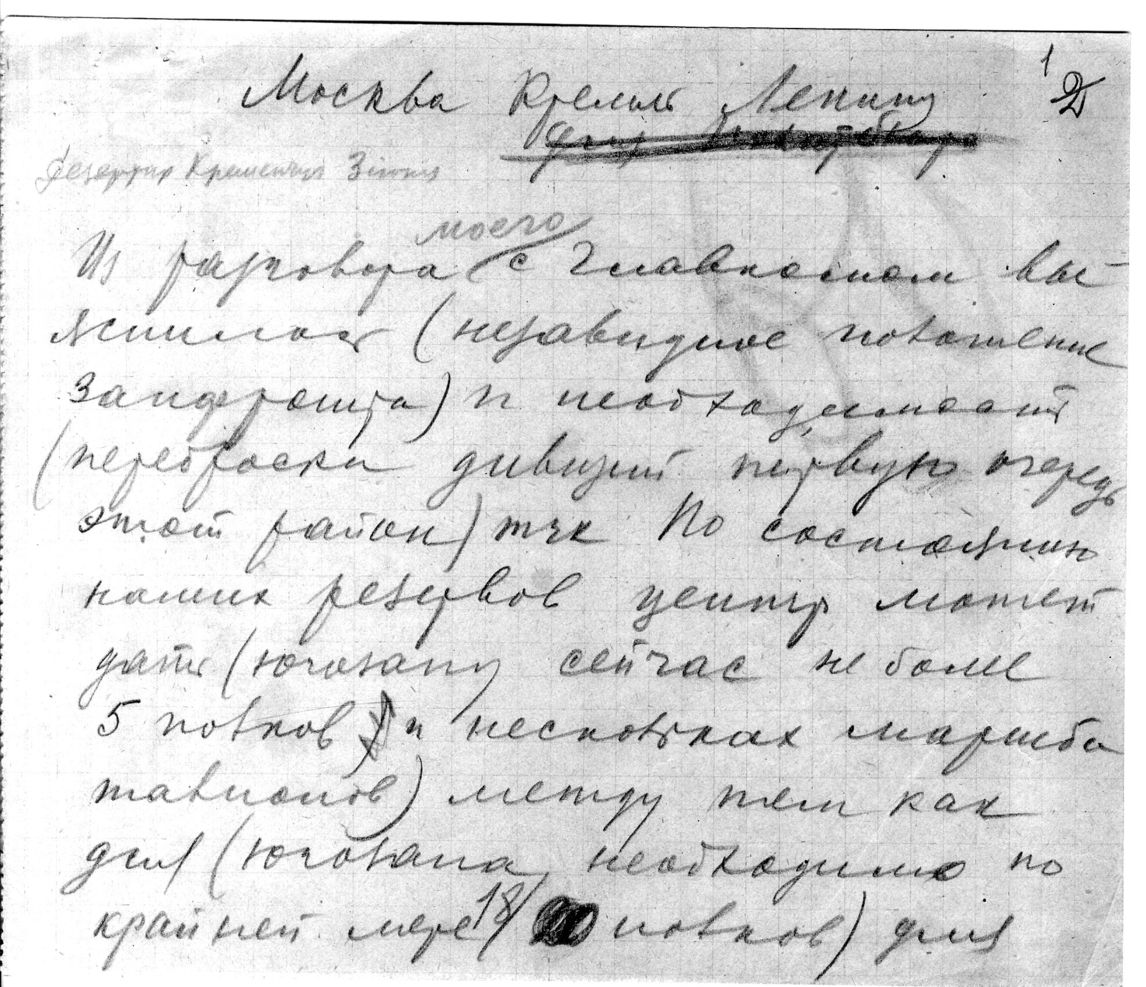 Москва Кремль Ленину
1
2
Кременчуг
моего
Из разговора с Главкомом вы-
яснилось (незавидное положение
Запфронта) и необходимость
(переброски дивизий первую очередь
этот район) тчк По состоянию
наших резервов центр может
дать (Югозапу сейчас не более
5 полков) и нескольких маршба
тальионов) между тем как
для (Югозапа необходимо по
крайней мере 18 полков) для